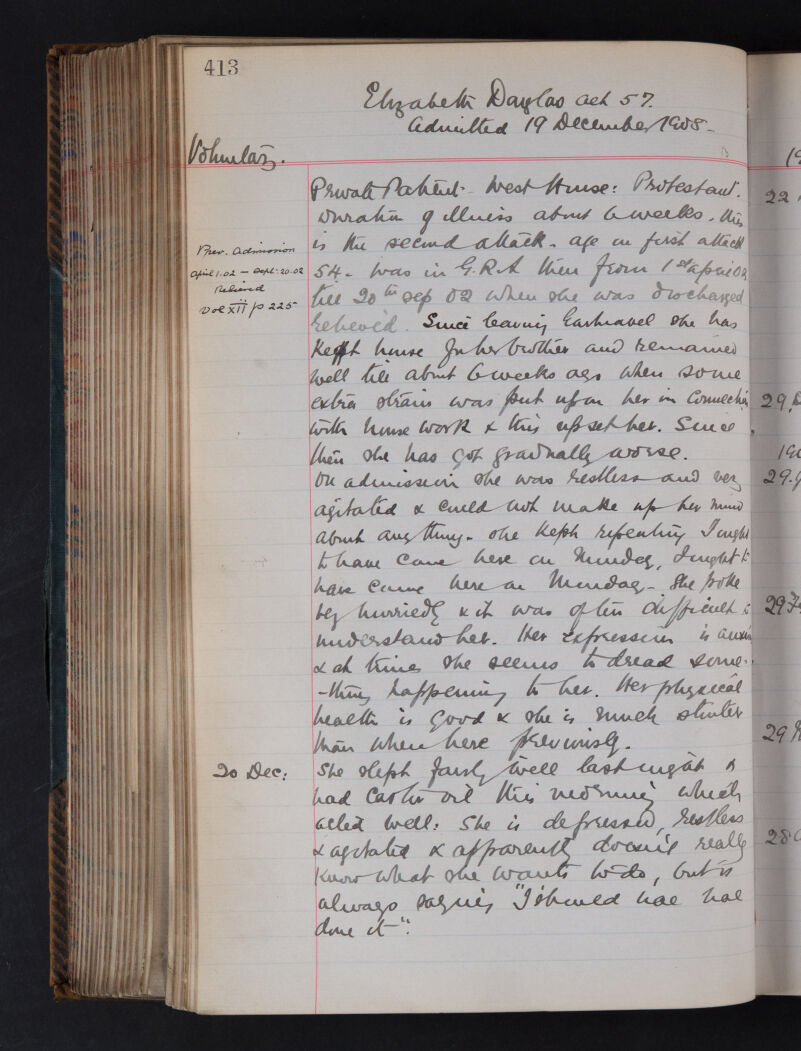 413
Elizabeth Douglas aet 57.
Admitted 19 December 1905-
Voluntary.
Private Patient - West House: Protestant.
Duration of illness about 6 weeks, this
is the second attack - age on first attack
54 - was in G.R.A then from 1st April 02
till 20th sep 02 when she was discharged
relieved. Since leaving Gartnavel she has
Kept house for her brother and remained
well till about 6 weeks ago when some
extra strain was put upon her in connection
with house work & this upset her. Since
then she has got gradually worse.
Prev. Admission
April 1.02 - Sept. 20.02
Relieved
Vol XII p 225
On admission she was restless and very
agitated & could not make up her mind
about anything - she kept repeating I ought
to have come here on Monday, I ought to
have come here on Monday - She spoke
very hurriedly & it was often difficult to
understand her. Her expression is anxious
& at times she seems to dread some-
-thing happening to her. Her physical
health is good & she is much stouter
than when here previously.
20 Dec:
She slept fairly well last night &
had castor oil this morning which
acted well: She is depressed, restless
& agitated & apparently doesn't really
know what she wants to do, but is
always saying "I should hae hae
done it".
22
29
29
29
29
28